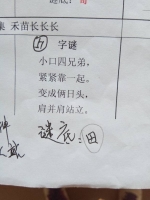 谜底：每
集 禾苗长长长
字谜
小口四兄弟，
紧紧靠一起。
变成俩日头，
肩并肩站立。
谜底：田
件